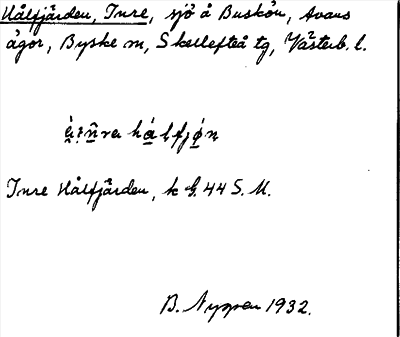 Hålfjärden, Inre, sjö å Buskön, Avans
ägor, Byske sn, Skellefteå tg, Västerb. l.
Inre Hålfjärden, k G. 44 S. U.
B. Nyman 1932.